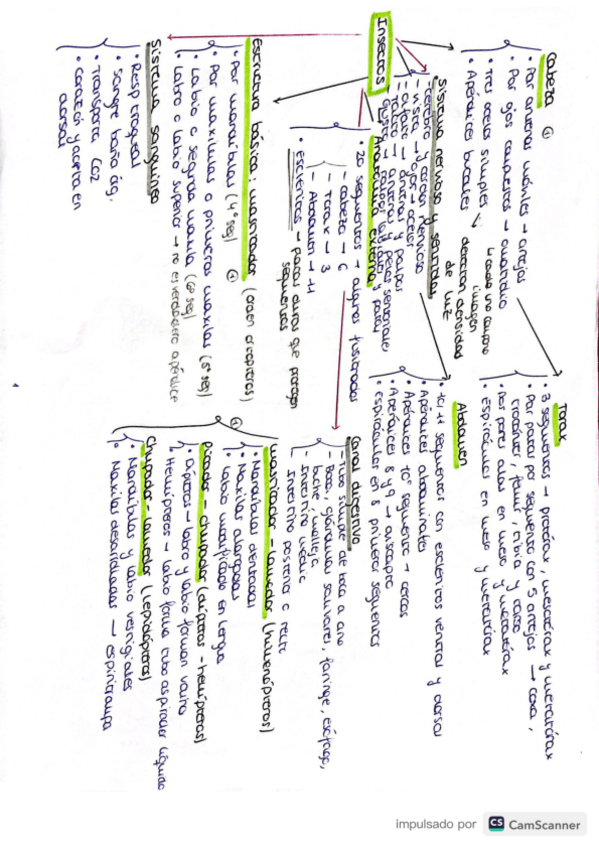 Insectos
Cabeza ①
• Par antenas móviles → artejos
• Par ojos compuestos → omatidio
↳ cada uno compone imagen
• Tres ocelos simples → detectan densidades de luz
• Apéndices bucales
Sistema nervioso y sentidos
- cerebro y cordón nervioso
- vista → ojos → ocelos
- olfato → antenas y palpos
- Tacto → antenas y pelos sensoriales
- gusto → palpos, labiales y patas
Anatomía externa
• 20 segmentos → algunos fusionados
- cabeza → 6
- Torax → 3
- Abdomen → 11
• escleritos → placas duras que protegen segmentos
Estructura básica: masticador (orden ortópteros)
• Par mandíbulas (4º seg)
• Par maxilulas o primeras maxilas (5º seg)
• Labio o segunda maxila (6º seg)
• Labro o labio superior → no es verdadero apéndice
Sistema sanguíneo
• Resp traqueal
• Sangre baña órg.
• Transporta CO2
• Corazón y aorta en dorsal
Torax
• 3 segmentos → protórax, mesotórax y metatórax
• Par patas por segmento con 5 artejos → coxa, trocánter, fémur, tibia y tarso
• Dos pares alas en meso y metatórax
• espiráculos en meso y metatórax
Abdomen
• 10/11 segmentos con escleritos ventral y dorsal
• Apéndices abdominales
• Apéndices 10º segmento → cercos
• Apéndices 8 y 9 → oviscapto
• espiráculos en 8 primeros segmentos
Canal digestivo
- Tubo simple de boca a ano
- Boca, glándulas salivares, faringe, esófago, buche, molleja
- Intestino medio
- Intestino posterior o recto
①
masticador - lamedor (himenópteros)
• Mandíbulas dentadas
• Maxilas alargadas
• Labio modificado en lengua
Picador - chupador (dípteros - hemípteros)
• Dípteros → labro y labio forman vaina
• Hemípteros → labio forma tubo aspirador líquido
Chupador - lamedor (lepidópteros)
• Mandíbulas y labio vestigiales
• Maxilas desarrolladas → espiritrompa
impulsado por CS CamScanner